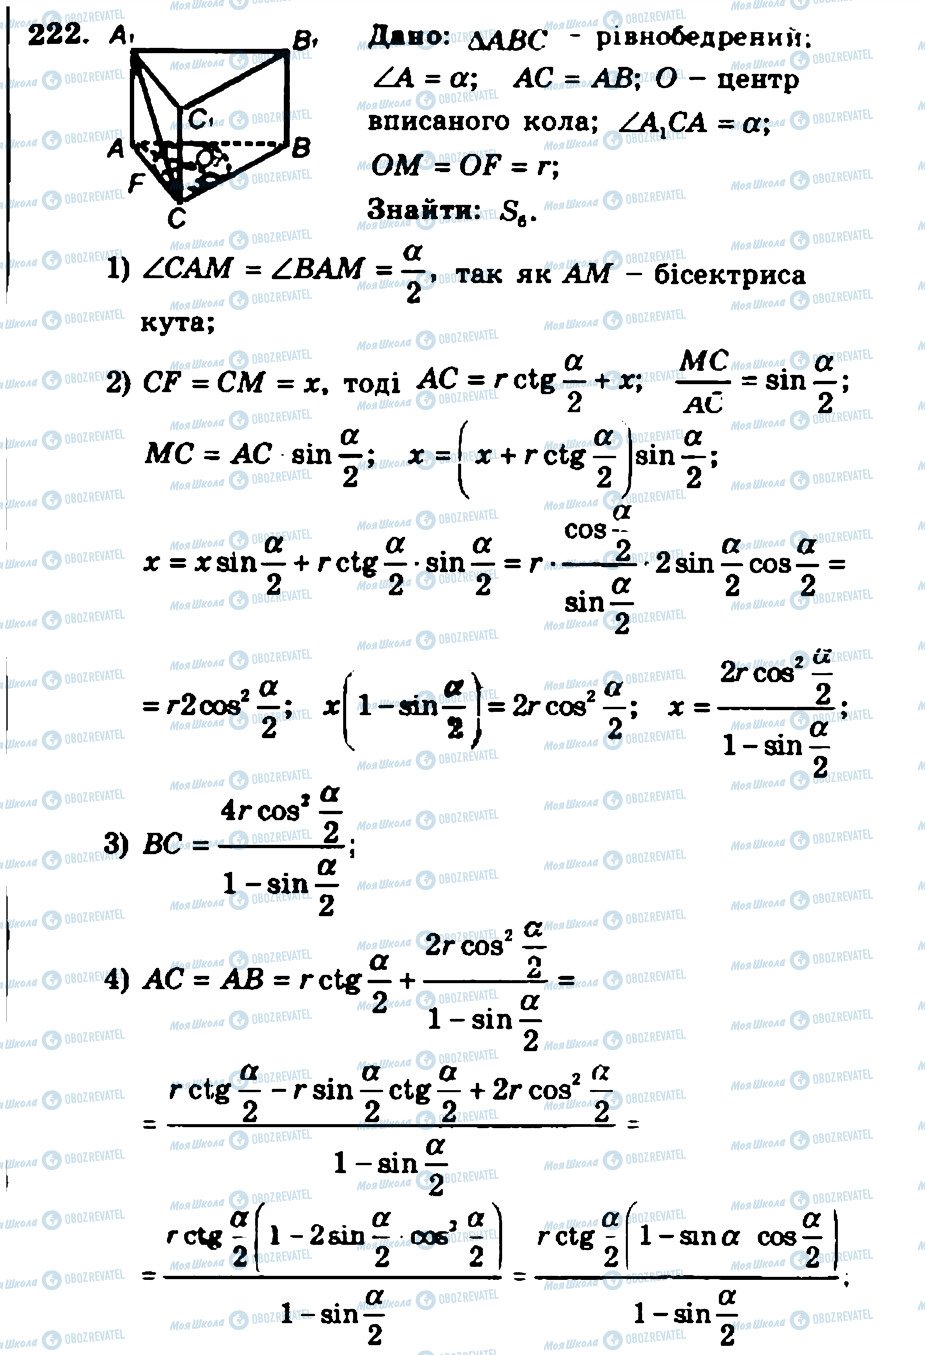 222. Дано: ΔABC - рівнобедрений;
∠A = α; AC = AB; O – центр
вписаного кола; ∠A₁CA = α;
OM = OF = r;
Знайти: Sб.
A₁ B₁
C₁
A O B
F
C
1) ∠CAM = ∠BAM = α/2, так як AM – бісектриса
кута;
2) CF = CM = x, тоді AC = r ctg α/2 + x; MC/AC = sin α/2;
MC = AC · sin α/2; x = (x + r ctg α/2) sin α/2;
x = x sin α/2 + r ctg α/2 · sin α/2 = r · (cos α/2)/(sin α/2) · 2 sin α/2 cos α/2 =
= r2cos² α/2; x(1 – sin α/2) = 2r cos² α/2; x = (2r cos² α/2)/(1 – sin α/2);
3) BC = (4r cos² α/2)/(1 – sin α/2);
4) AC = AB = r ctg α/2 + (2r cos² α/2)/(1 – sin α/2) =
= (r ctg α/2 – r sin α/2 ctg α/2 + 2r cos² α/2)/(1 – sin α/2) =
= (r ctg α/2 (1 – 2 sin α/2 · cos² α/2))/(1 – sin α/2) = (r ctg α/2 (1 – sin α cos α/2))/(1 – sin α/2);
Моя Школа OBOZREVATEL